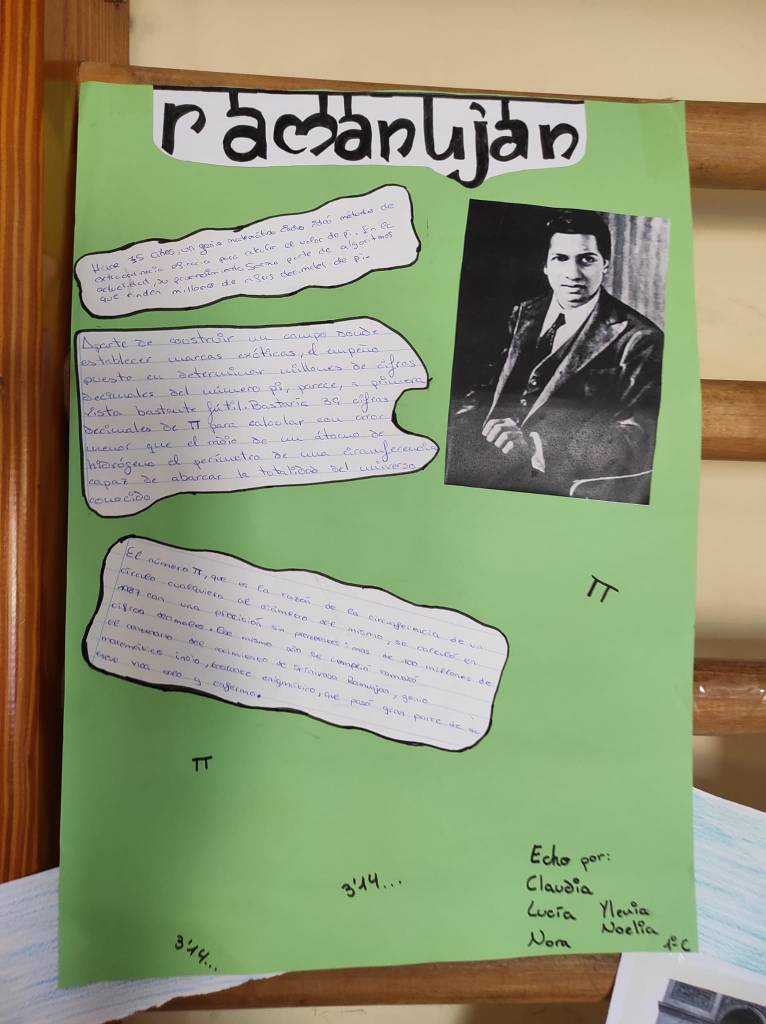 ramanujan
Hace 75 años, un genio matemático indio ideó métodos de
extraordinaria eficacia para calcular el valor de pi. En la
actualidad, su procedimiento forma parte de algoritmos
que rinden millones de cifras decimales de pi.
Aparte de construir un campo donde
establecer marcas exóticas, el empeño
puesto en determinar millones de cifras
decimales del número pi, parece, a primera
vista bastante fútil. Bastaría 39 cifras
decimales de π para calcular con error
menor que el radio de un átomo de
hidrógeno el perímetro de una circunferencia
capaz de abarcar la totalidad del universo
conocido
El número π, que es la razón de la circunferencia de un
círculo cualquiera al diámetro del mismo, se calculó en
1987 con una precisión sin precedentes: mas de 100 millones de
cifras decimales. Ese mismo año se cumplió también
el centenario del nacimiento de Srinivasa Ramanujan, genio
matemático indio, bastante enigmático, que pasó gran parte de su
breve vida solo y enfermo.
π
π
3'14...
3'14...
Echo por:
Claudia
Lucía Ylenia
Nora Noelia 1º C